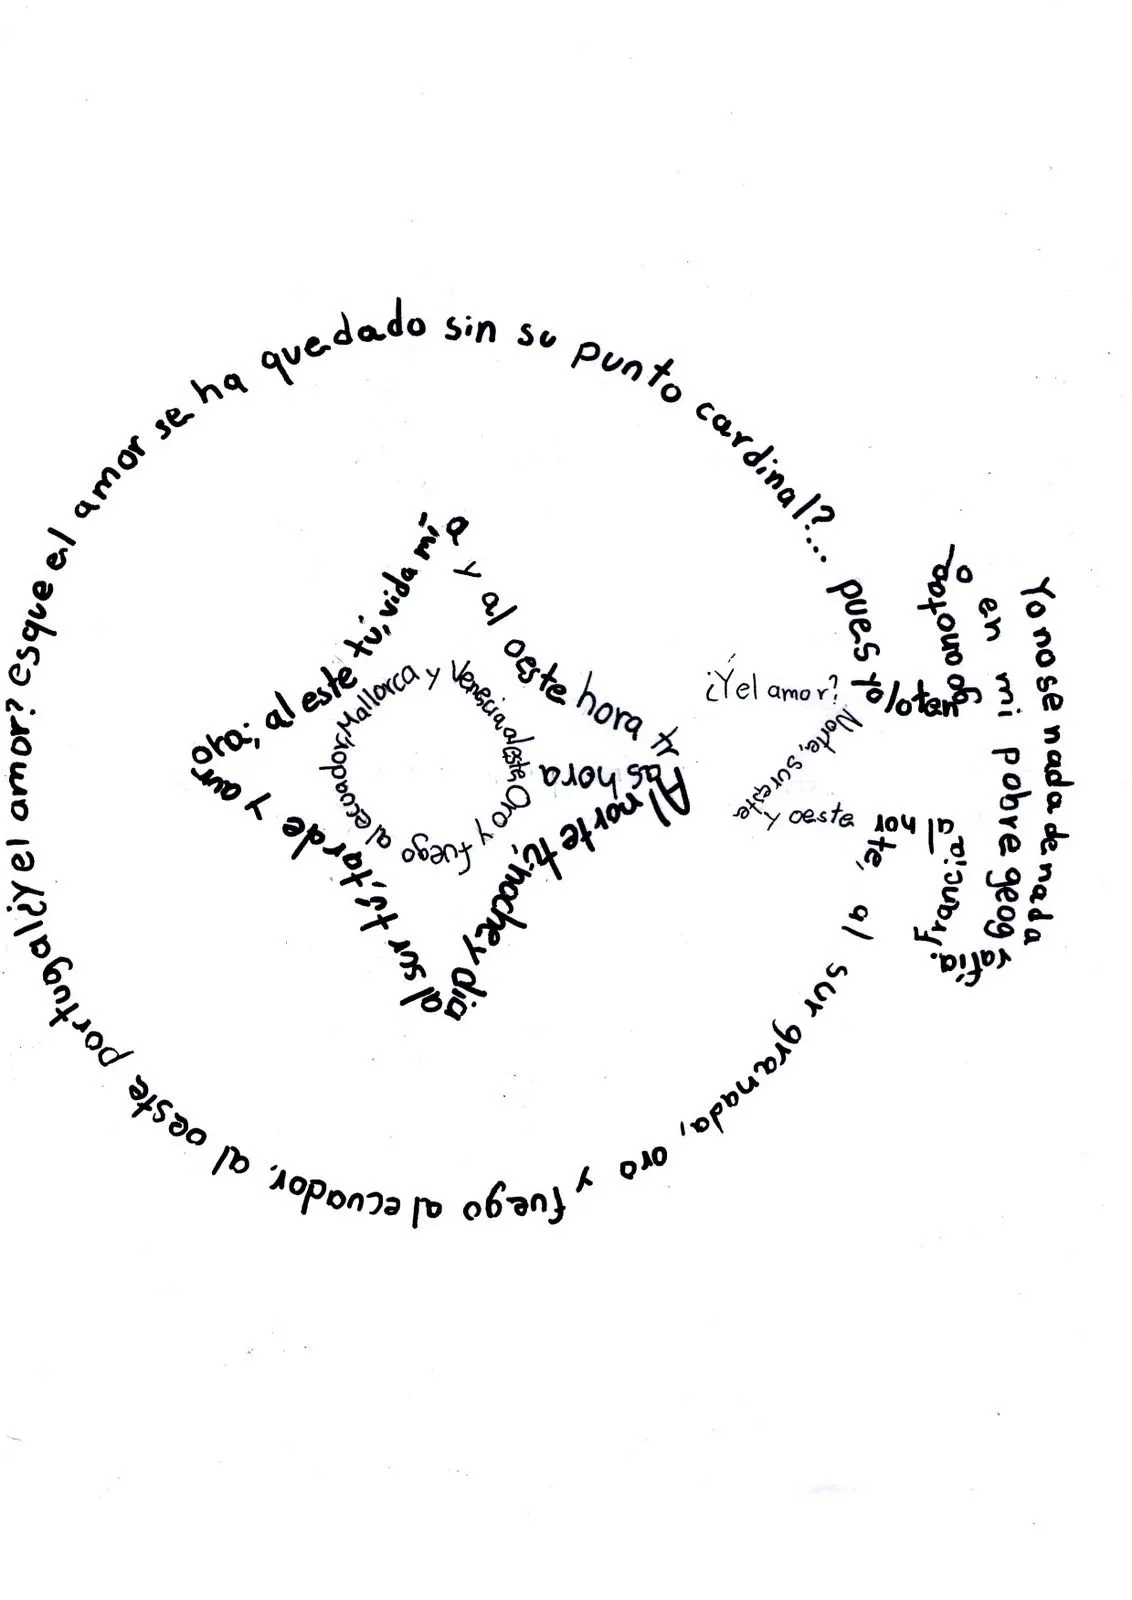 Yo no se nada de nada
en mi pobre geografia.
Francia, al norte, al sur granada, oro y fuego al ecuador, al oeste portugal ¿Y el amor? es que el amor se ha quedado sin su punto cardinal?... pues yo lo tengo
¿Y el amor?
Norte, sur este
y oeste
Al norte tú, noche y dia
al sur tú, tarde y aurora; al este tú, vida mía y al oeste hora tras hora
Oro y fuego al ecoador, Mallorca y Venecia al este,